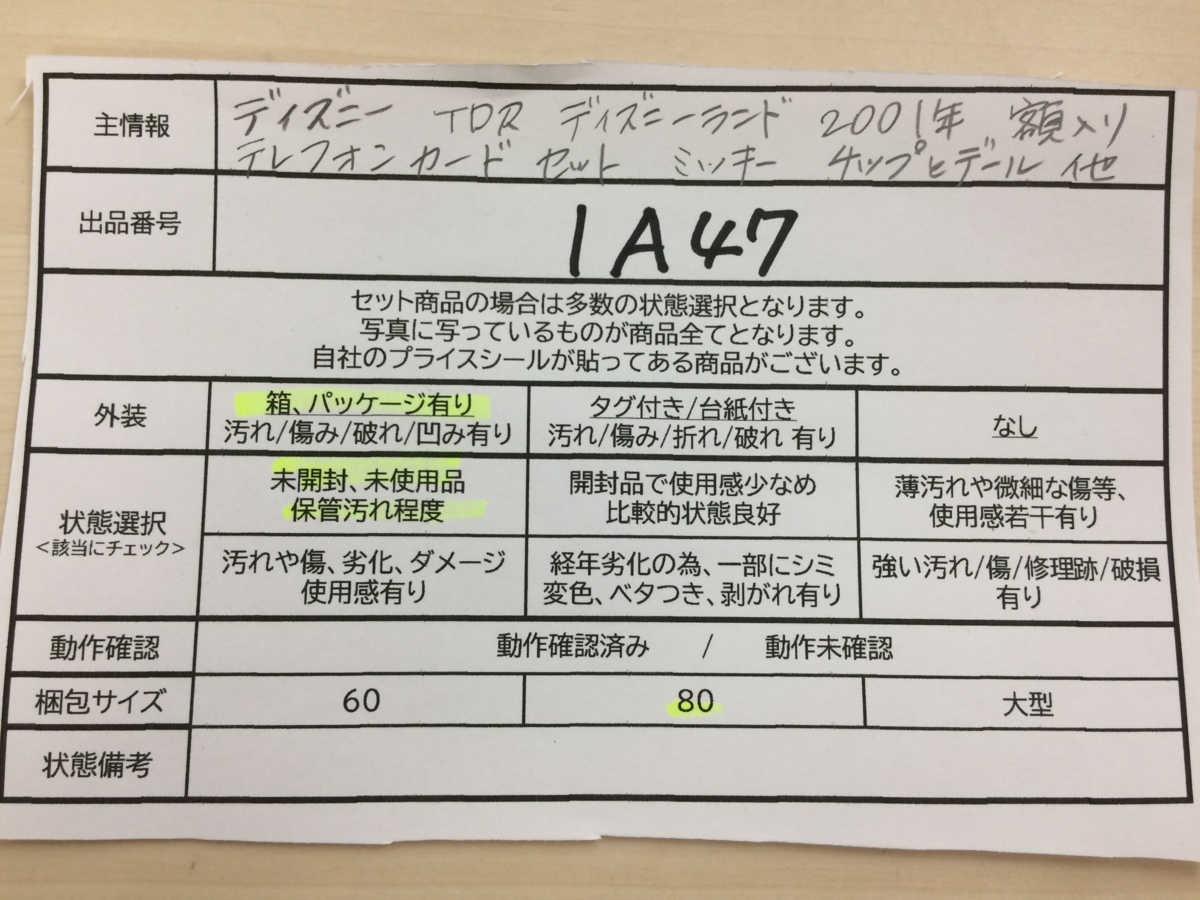 主情報
ディズニー TDR ディズニーランド 2001年 額入り
テレフォンカード セット ミッキー チップとデール 他
出品番号
1A47
セット商品の場合は多数の状態選択となります。
写真に写っているものが商品全てとなります。
自社のプライスシールが貼ってある商品がございます。
外装
箱、パッケージ有り
汚れ/傷み/破れ/凹み有り
タグ付き/台紙付き
汚れ/傷み/折れ/破れ 有り
なし
状態選択
<該当にチェック>
未開封、未使用品
保管汚れ程度
開封品で使用感少なめ
比較的状態良好
薄汚れや微細な傷等、
使用感若干有り
汚れや傷、劣化、ダメージ
使用感有り
経年劣化の為、一部にシミ
変色、ベタつき、剥がれ有り
強い汚れ/傷/修理跡/破損
有り
動作確認
動作確認済み / 動作未確認
梱包サイズ
60
80
大型
状態備考